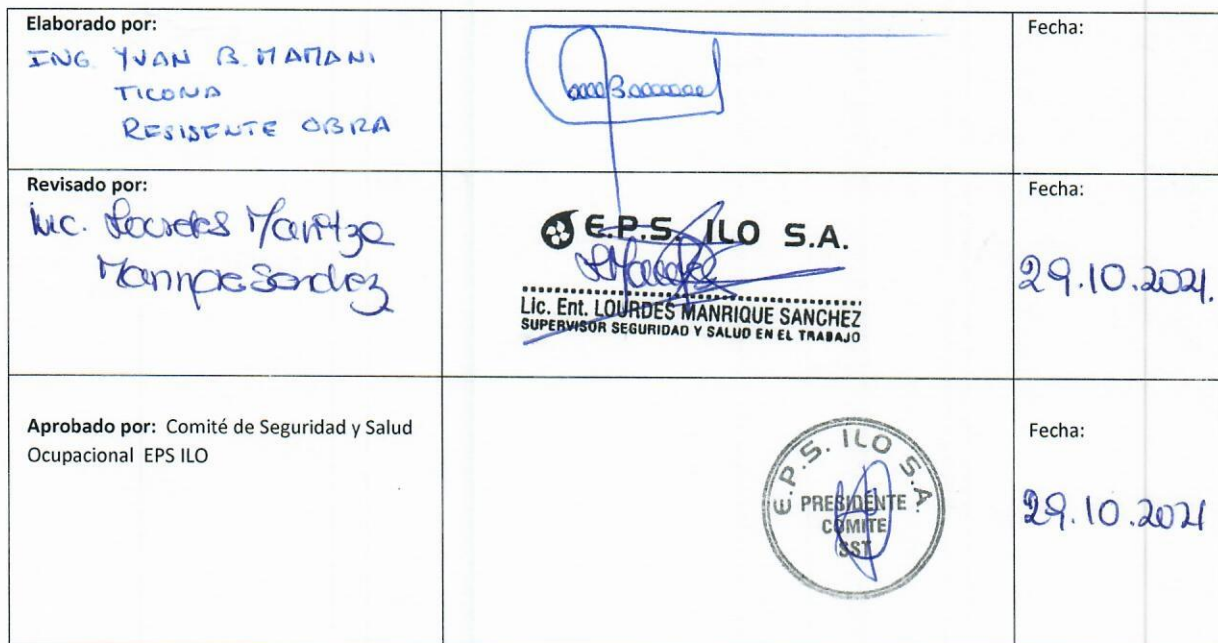 Elaborado por:
ING. YVAN B. MAMANI
TICONA
RESIDENTE OBRA
Fecha:
Revisado por:
Lic. Lourdes Maritza
Manrique Sanchez
E.P.S. ILO S.A.
Lic. Ent. LOURDES MANRIQUE SANCHEZ
SUPERVISOR SEGURIDAD Y SALUD EN EL TRABAJO
Fecha:
29.10.2021.
Aprobado por: Comité de Seguridad y Salud
Ocupacional EPS ILO
E.P.S. ILO S.A.
PRESIDENTE
COMITE
SST
Fecha:
29.10.2021